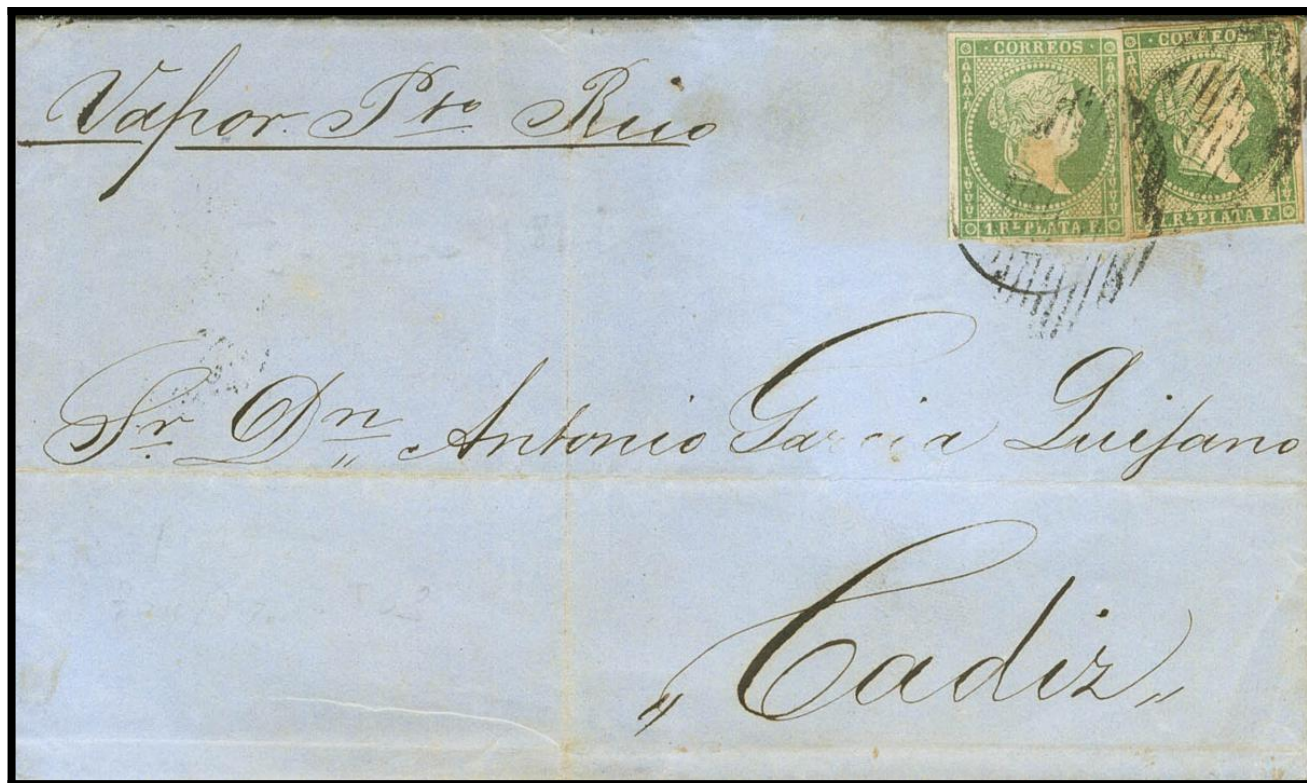 Vapor Pto Rico
CORREOS
1 Rl PLATA F.
CORREOS
1 Rl PLATA F.
Sr. Dn Antonio Garcia Quijano
"Cadiz"